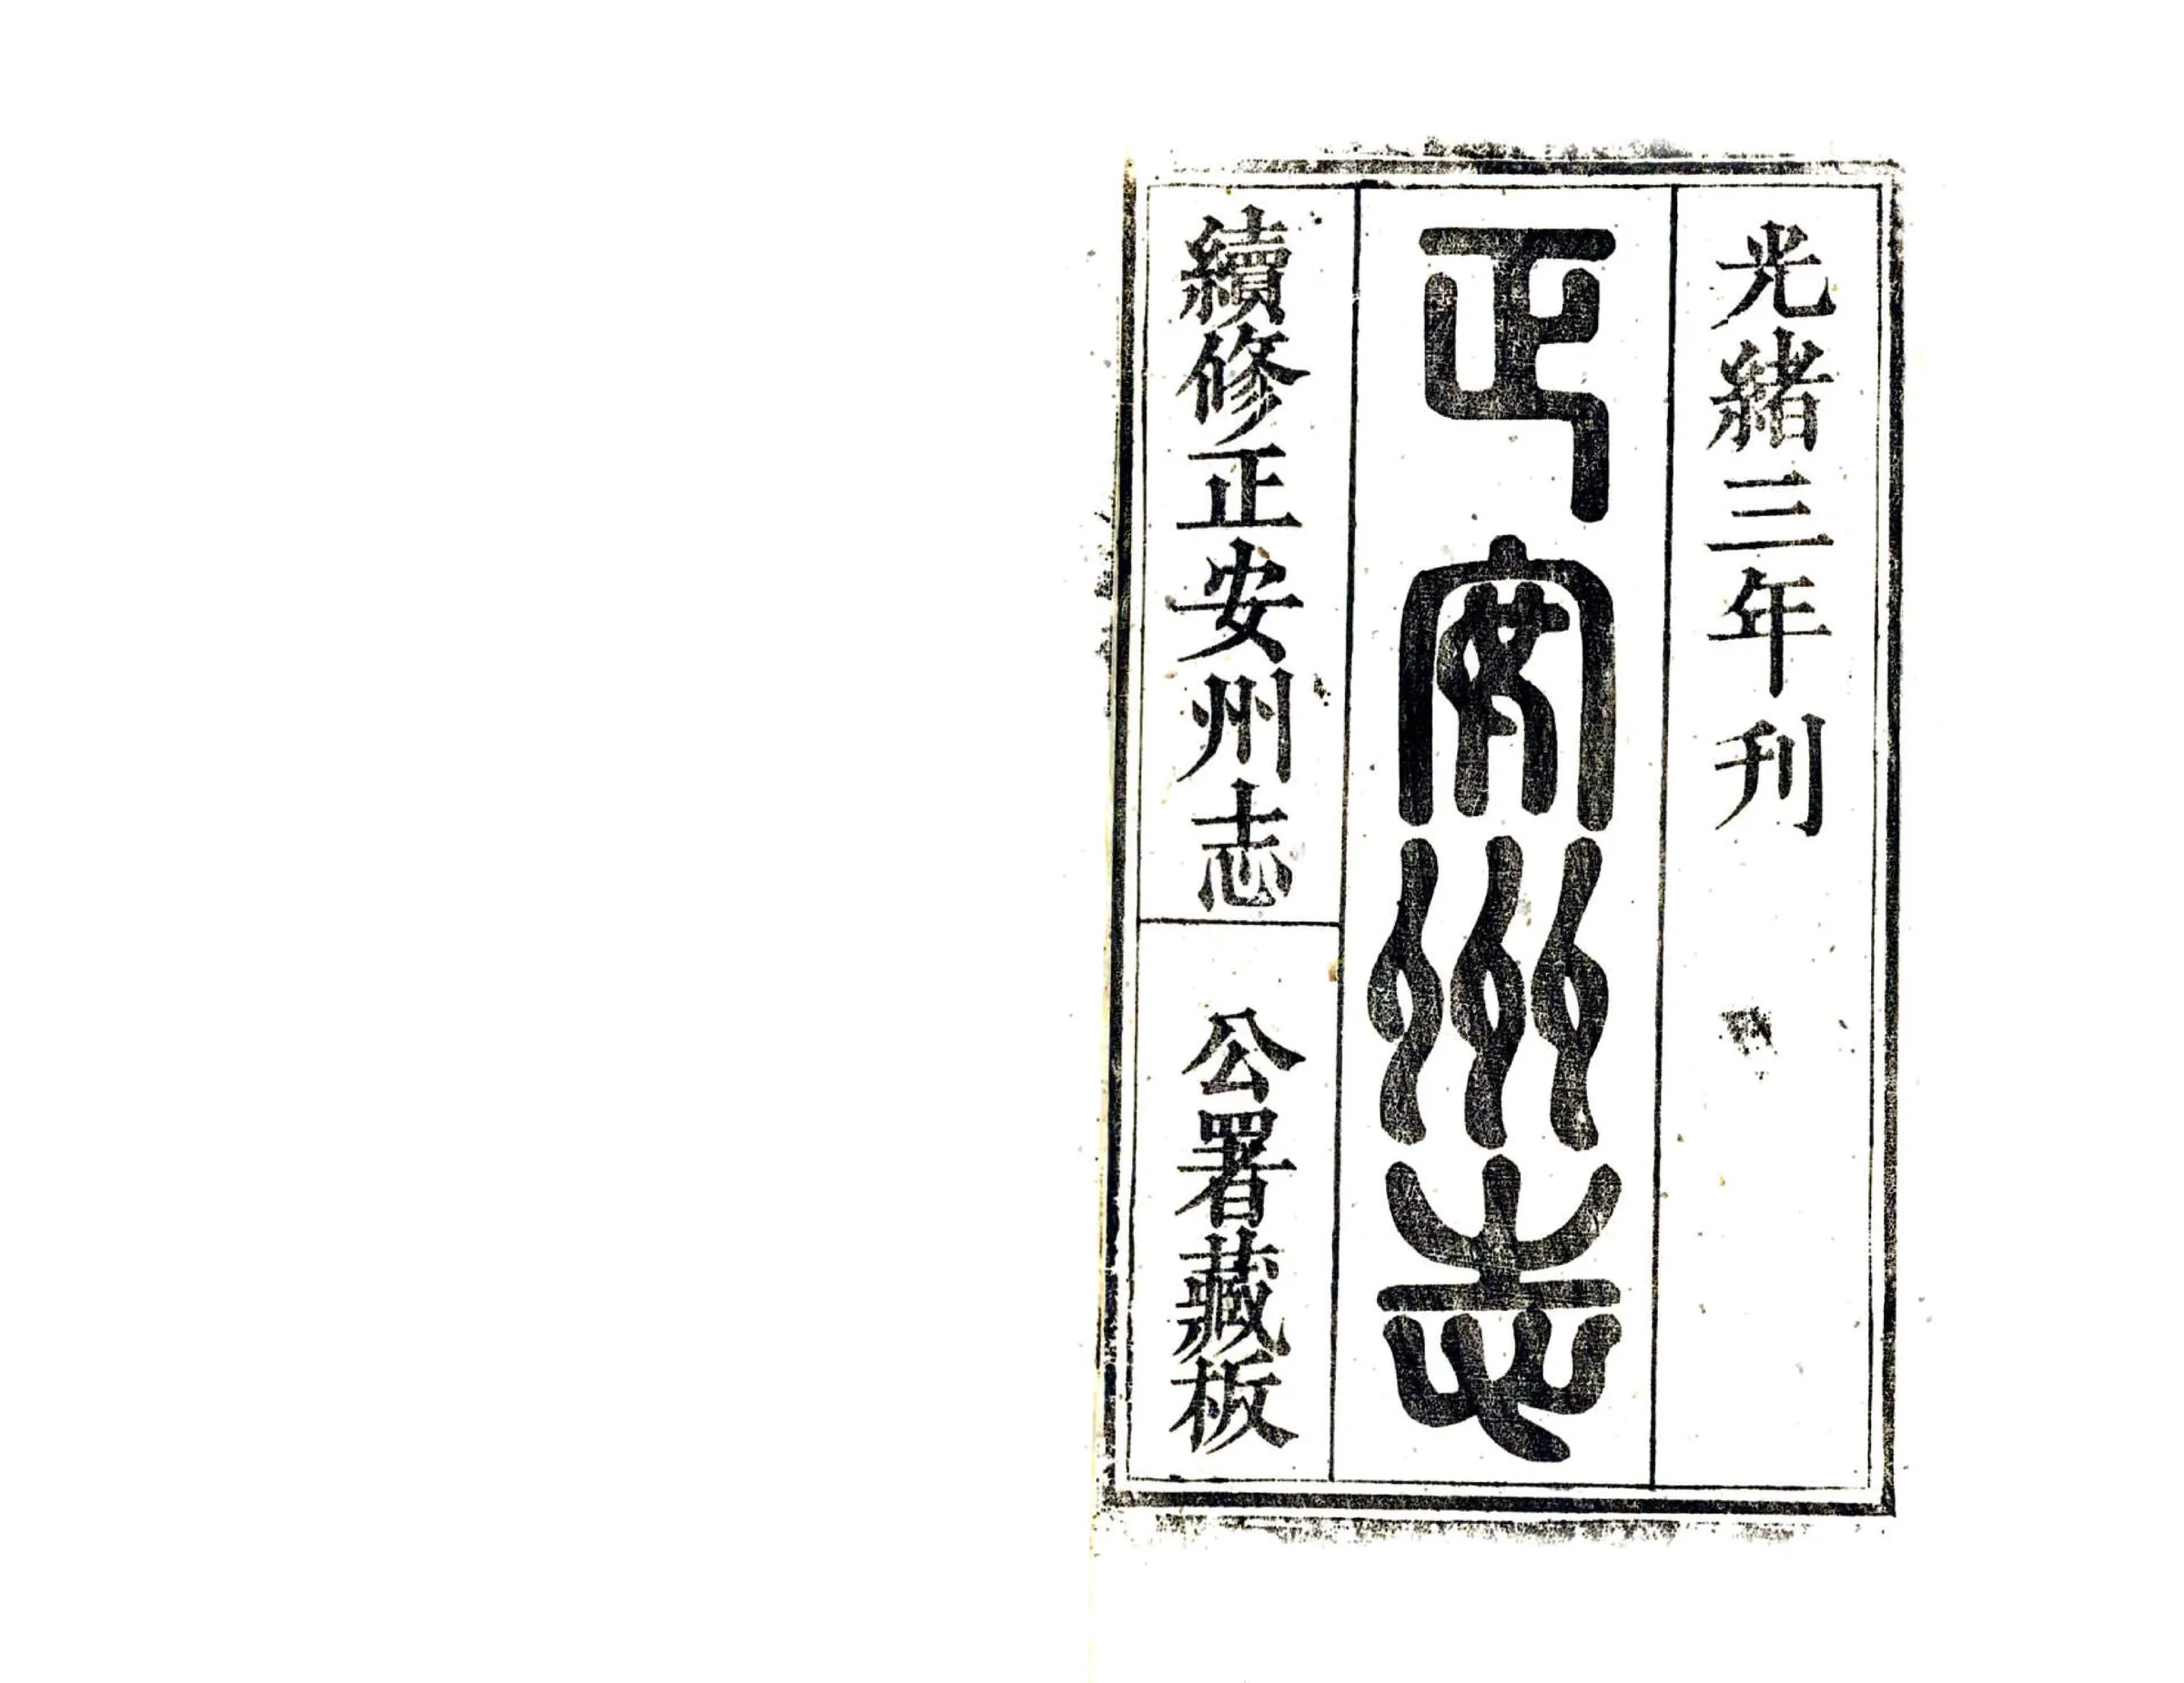 光緒三年刋
正安州志
續修正安州志
公署藏板